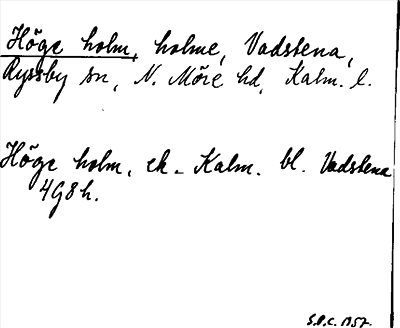 Höge holm, holme, Vadstena,
Ryssby sn, N. Möre hd, Kalm. l.
Höge holm, ek. Kalm. bl. Vadstena
4G8h.
S.P.C. 1957.